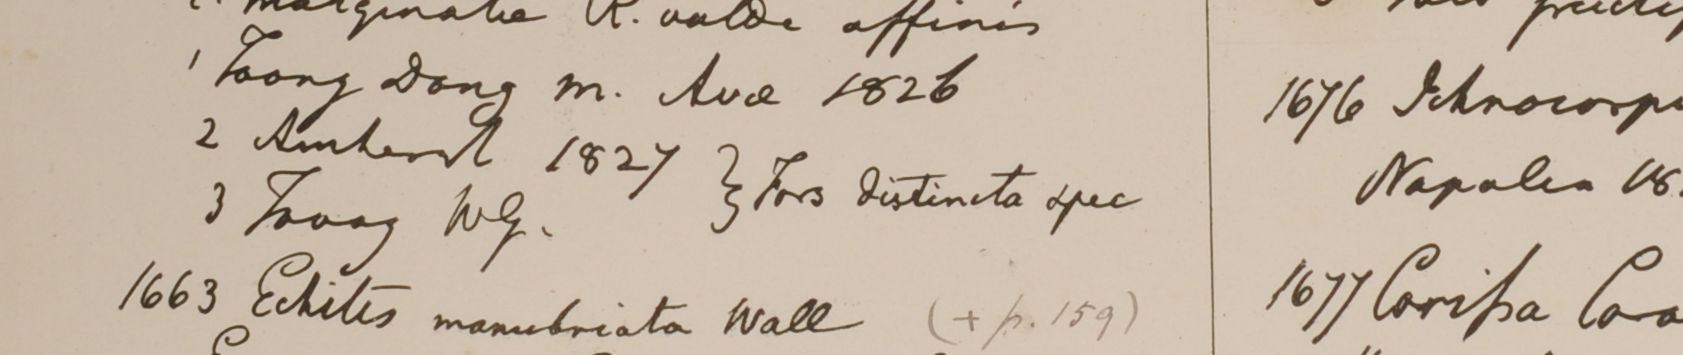 marginatae R. valde affinis
1 Toong Dong m. Avae 1826
2 Amherst 1827 } Fors distincta spec
3 Tavoy WG.
1663 Echites manubriata Wall (+ p. 159)
1676 Ichnocarpu
Napalia 18
1677 Carissa Cara